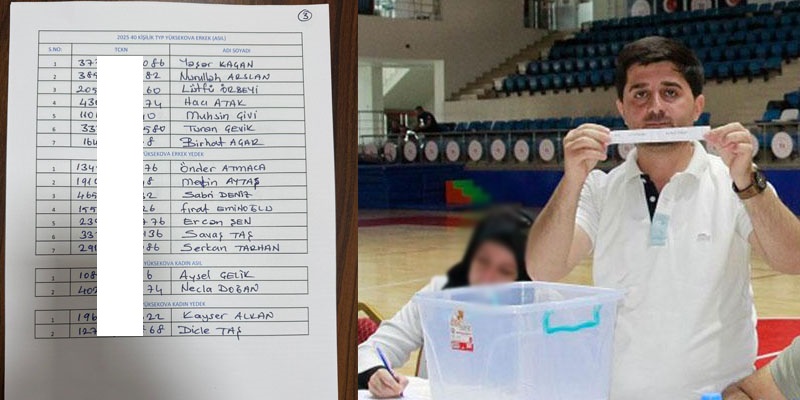 3
2025-40 KİŞİLİK TYP YÜKSEKOVA ERKEK (ASIL)
S.NO: TCKN ADI SOYADI
1 377 086 Yaşar KAĞAN
2 389 82 Nurullah ARSLAN
3 205 60 Lütfü ÖRBEYİ
4 430 74 Hacı ATAK
5 110 10 Muhsin Givi
6 337 580 Turan Gevik
7 164 8 Birhat AĞAR
YÜKSEKOVA ERKEK YEDEK
1 134 76 Önder ATMACA
2 1910 8 Metin AYTAŞ
3 465 32 Sabri DENİZ
4 155 26 Fırat EMİNOĞLU
5 239 776 Ercan ŞEN
6 337 136 Savaş TAŞ
7 298 086 Serkan TARHAN
YÜKSEKOVA KADIN ASIL
1 108 6 Aysel ÇELİK
2 402 74 Necla DOĞAN
YÜKSEKOVA KADIN YEDEK
1 196 322 Kayser ALKAN
2 127 768 Dicle TAŞ